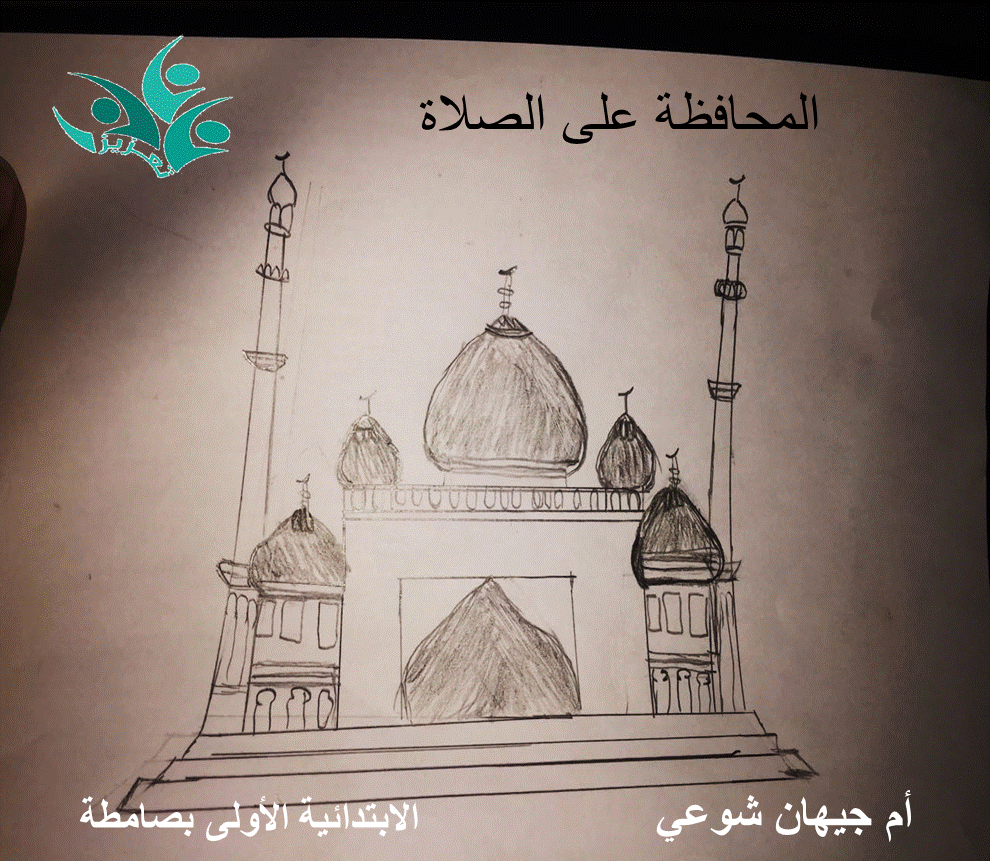 المحافظة على الصلاة
تعزيز
أم جيهان شوعي
الابتدائية الأولى بصامطة